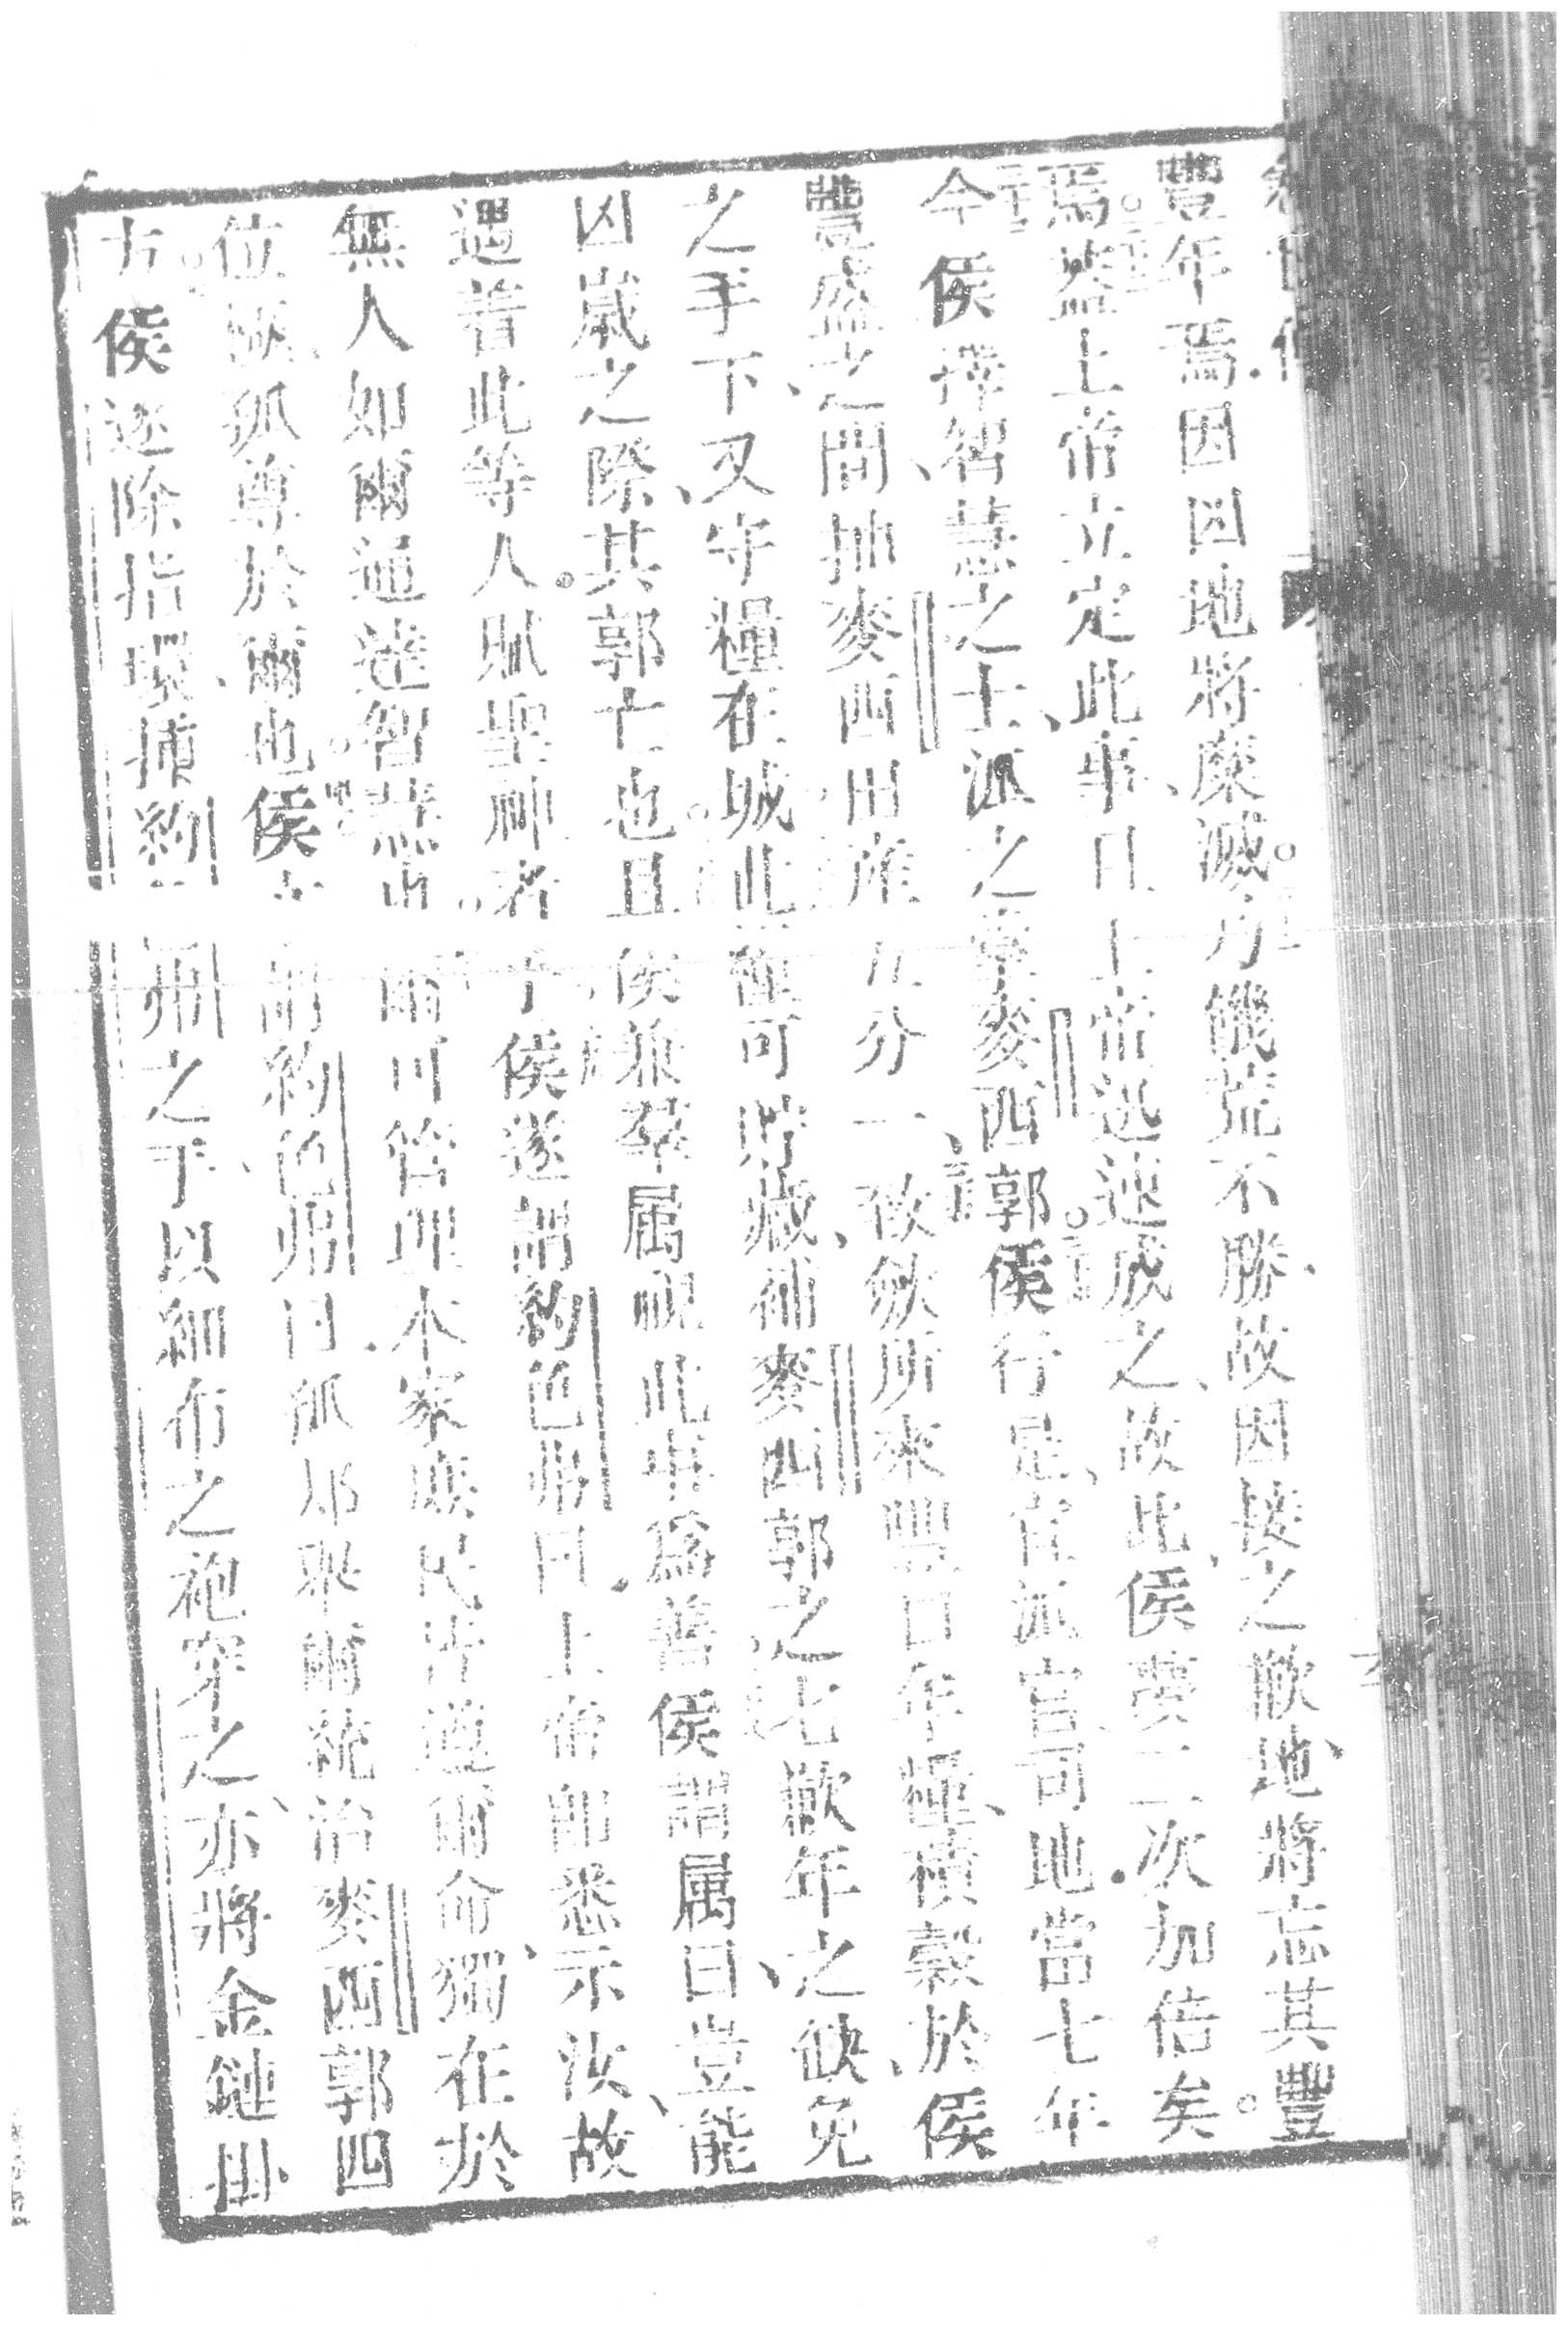 豐年焉因凶地將糜滅乃饑荒不勝故因接之歉地將忘其豐
焉。蓋上帝立定此事且上帝迅速成之、故此侯夢二次加倍矣
今侯擇智慧之士派之掌麥西郭侯行是、官派官司地當七年
豐盛之間抽麥西田産五分一、致斂所來豐年糧、積穀於侯
之手下、又守糧在城此糧可貯藏、補麥西郭之七歉年之缺免
凶歲之際、其郭亡也。且侯兼羣属視此事為善侯謂属曰豈能
遇着此等人。賦聖神者乎侯遂謂約色弗曰上帝即悉示汝故
無人如爾通達智慧也。爾可管理本家庶民皆遵爾命、獨在於
位、孤尊於爾也。侯又謂約色弗曰孤即恥爾統治麥西郭四
方。侯遂除指環、插約色弗之手、以細布之袍穿之、亦將金鏈掛